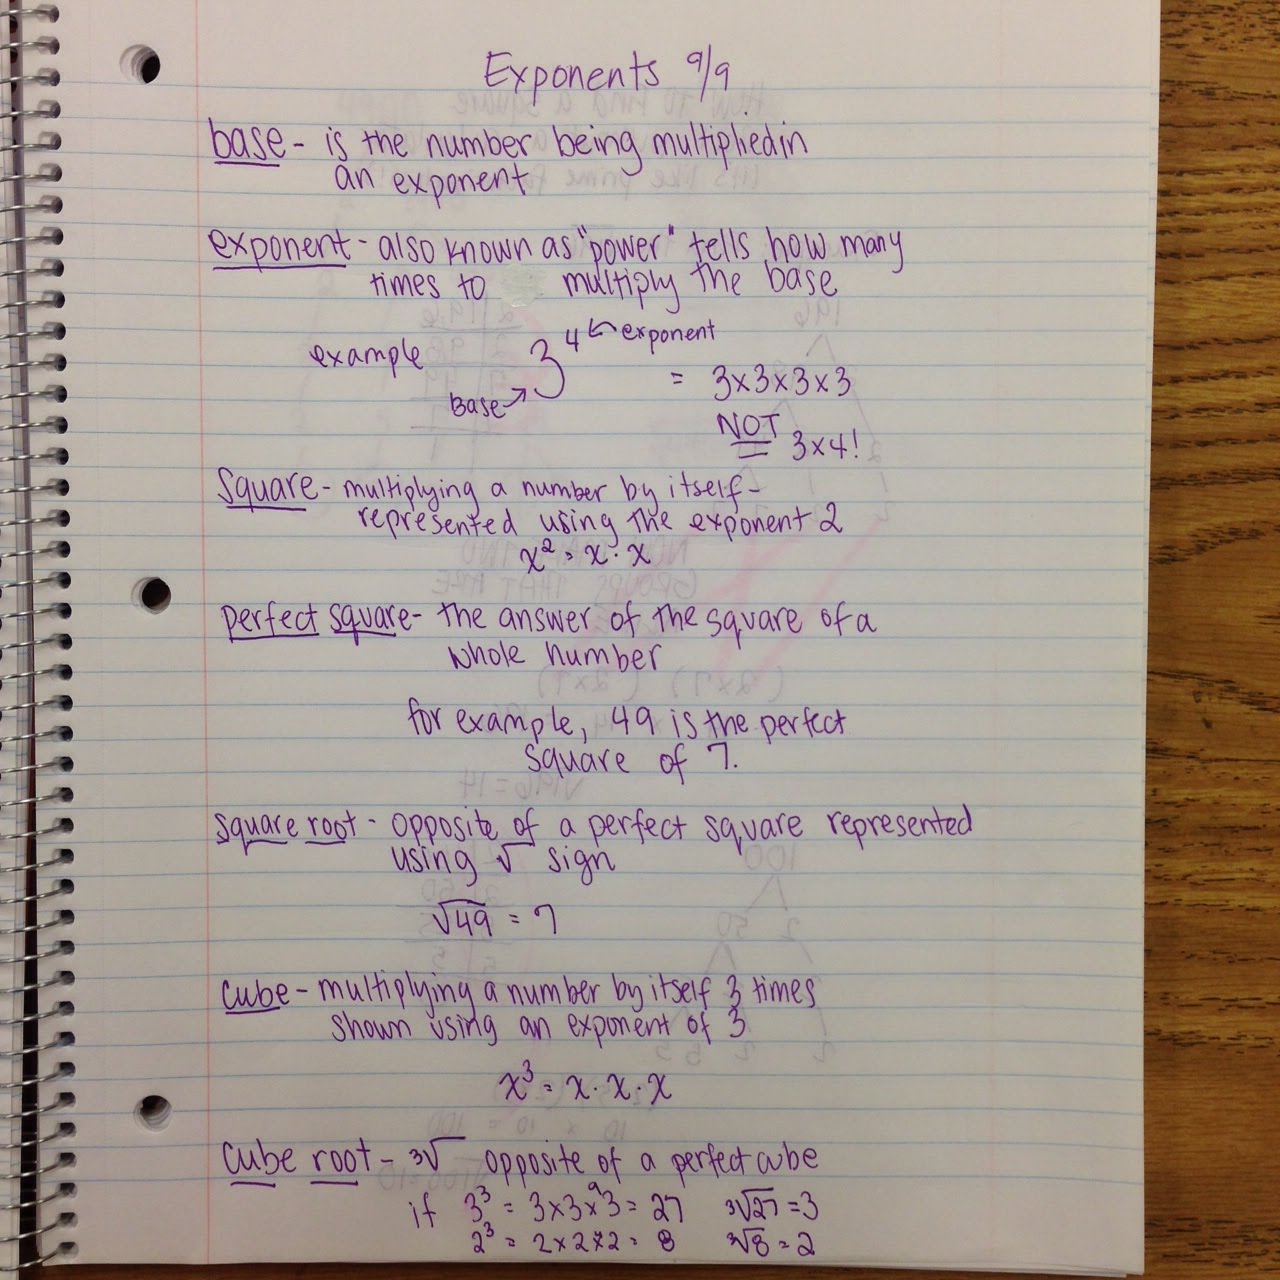 Exponents 9/9
base - is the number being multiplied in
an exponent
exponent - also known as "power" tells how many
times to multiply the base
4 ← exponent
example 3
= 3×3×3×3
Base →
NOT
3×4!
Square - multiplying a number by itself -
represented using the exponent 2
x² = x · x
perfect square - the answer of the square of a
whole number
for example, 49 is the perfect
square of 7.
square root - opposite of a perfect square represented
using √ sign
√49 = 7
cube - multiplying a number by itself 3 times
shown using an exponent of 3
x³ = x · x · x
cube root - ³√ opposite of a perfect cube
9
if 3³ = 3×3×3 = 27 ³√27 = 3
2³ = 2×2×2 = 8 ³√8 = 2